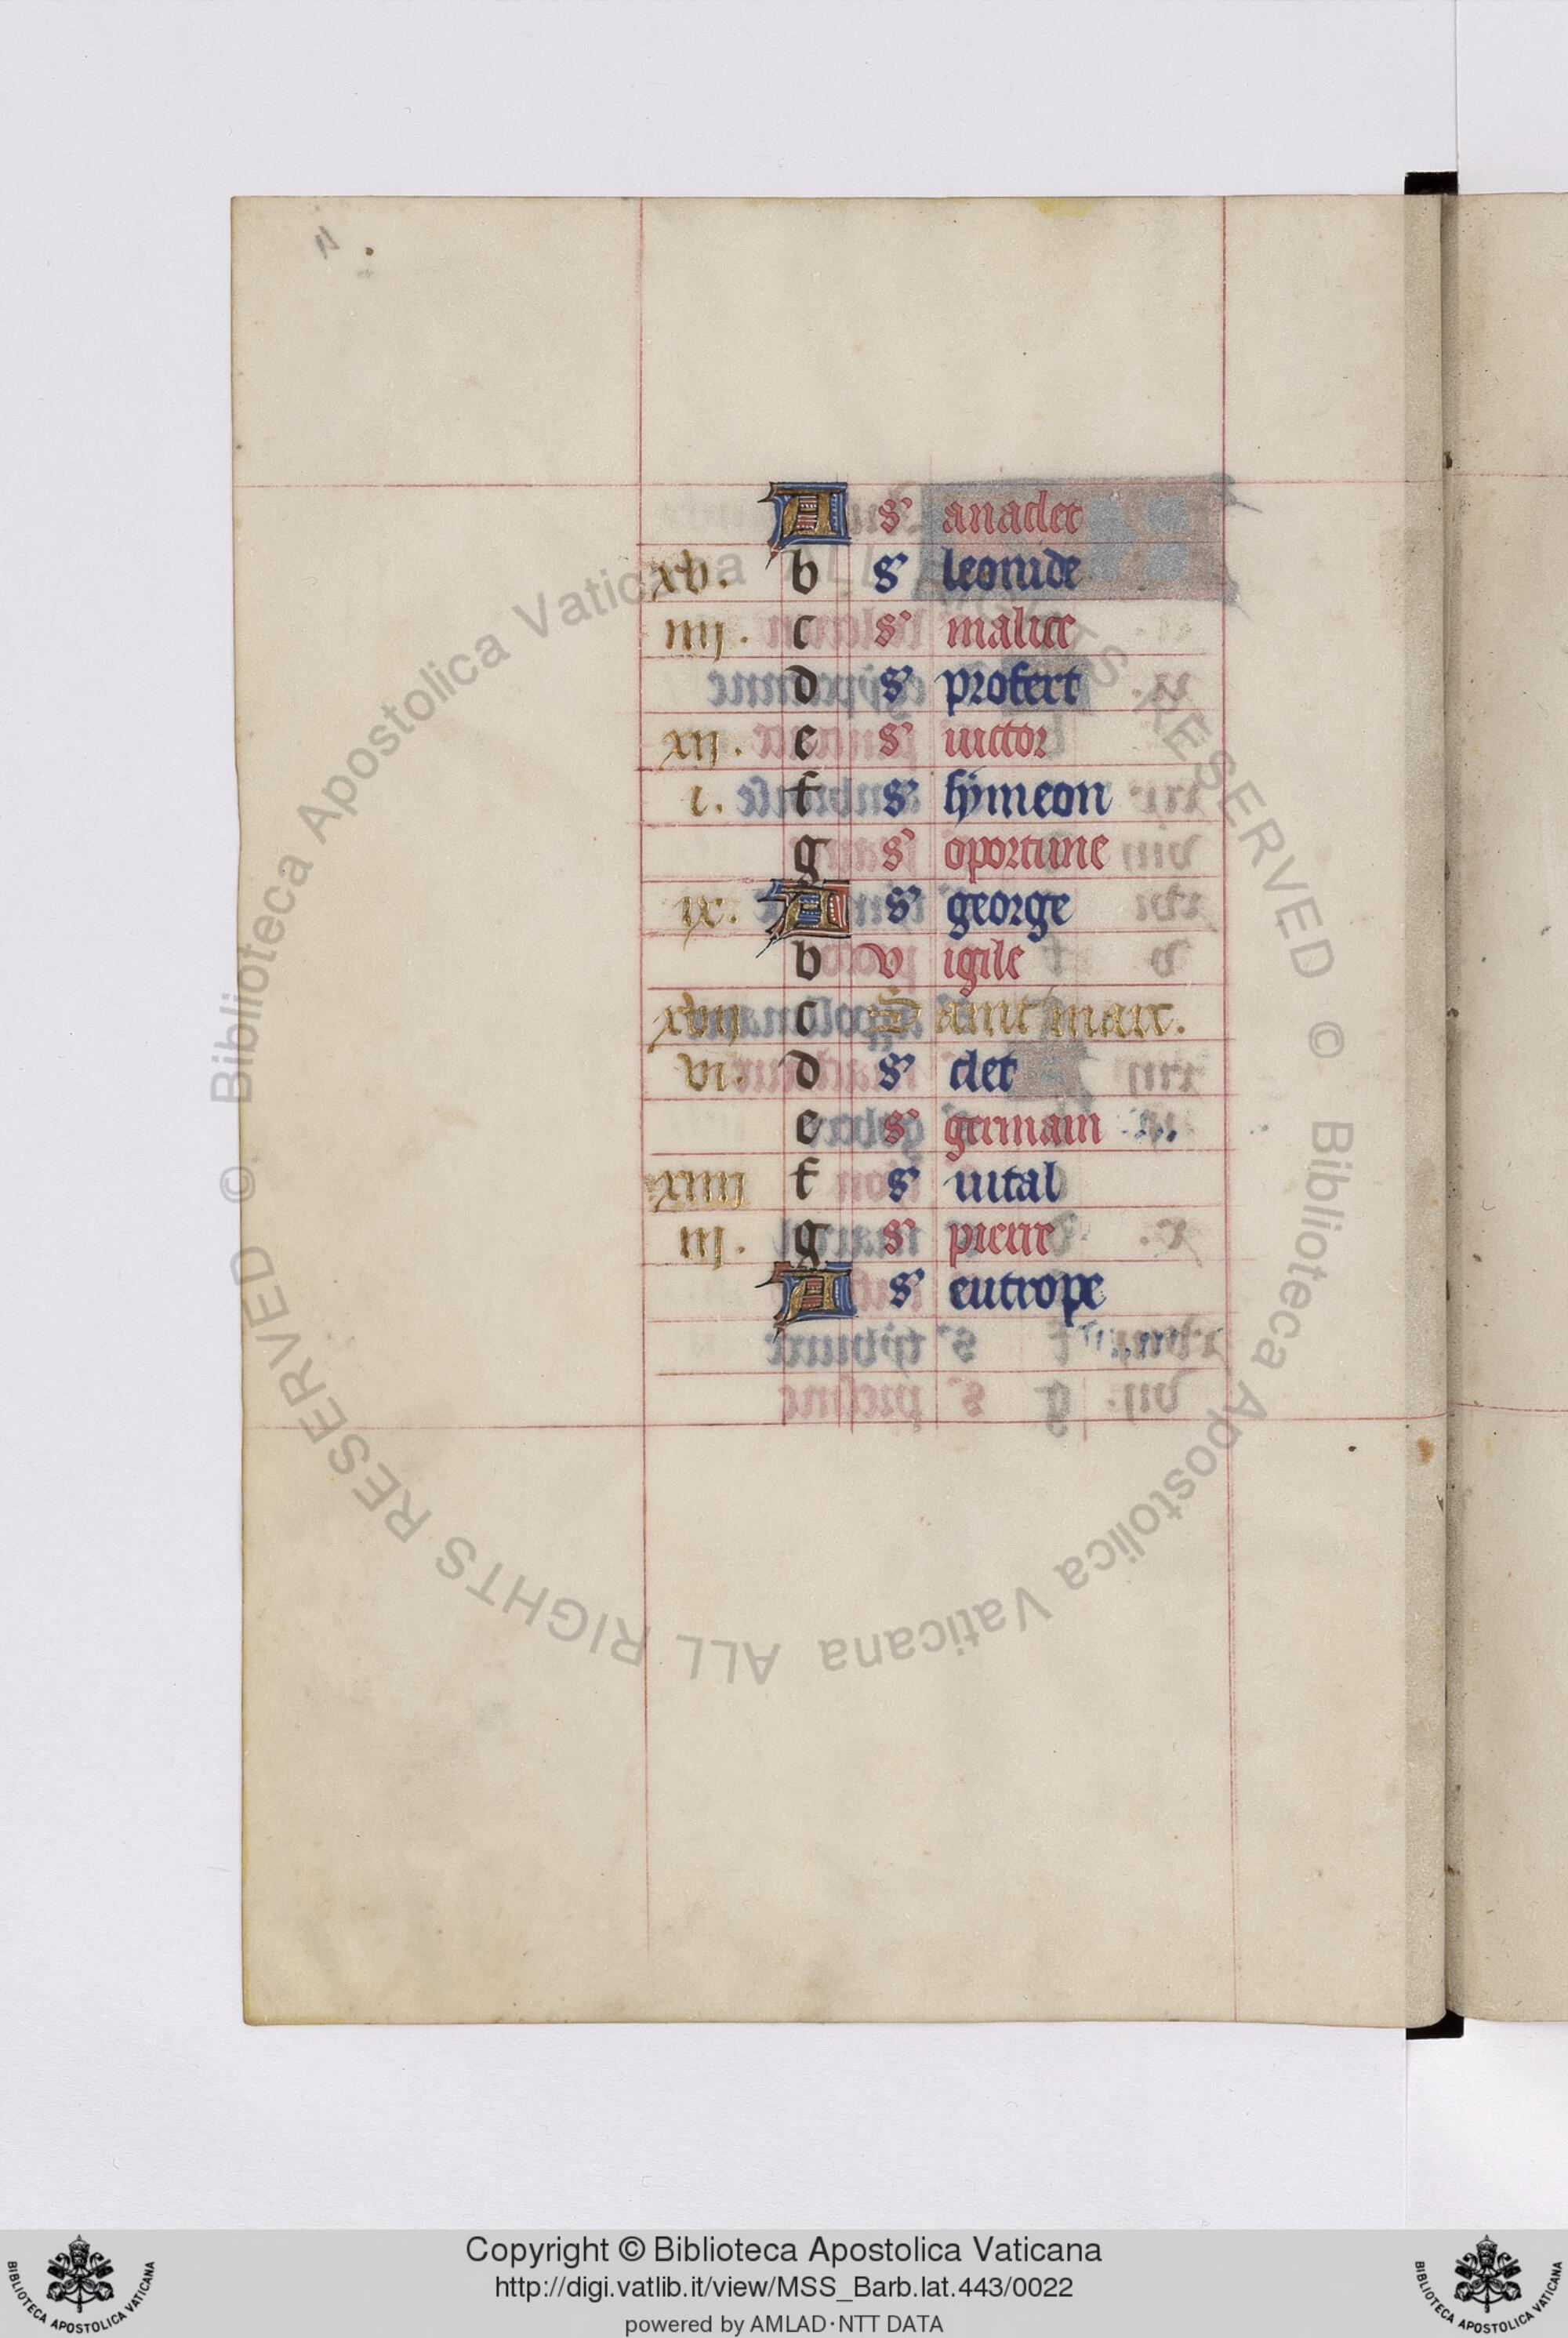 A s' anaclet
xv. b s' leonide
iiij. c s' malice
d s' profert
xij. e s' victor
i. f s' symeon
g s' oportune
ix. A s' george
b v igile
xvij c S aint marc.
vi. d s' clet
e s' germain
xiiij f s' vital
iij. g s' pierre
A s' eutrope
© Biblioteca Apostolica Vaticana ALL RIGHTS RESERVED © Biblioteca Apostolica Vaticana ALL RIGHTS RESERVED
Copyright © Biblioteca Apostolica Vaticana
http://digi.vatlib.it/view/MSS_Barb.lat.443/0022
powered by AMLAD·NTT DATA
BIBLIOTECA APOSTOLICA VATICANA
BIBLIOTECA APOSTOLICA VATICANA